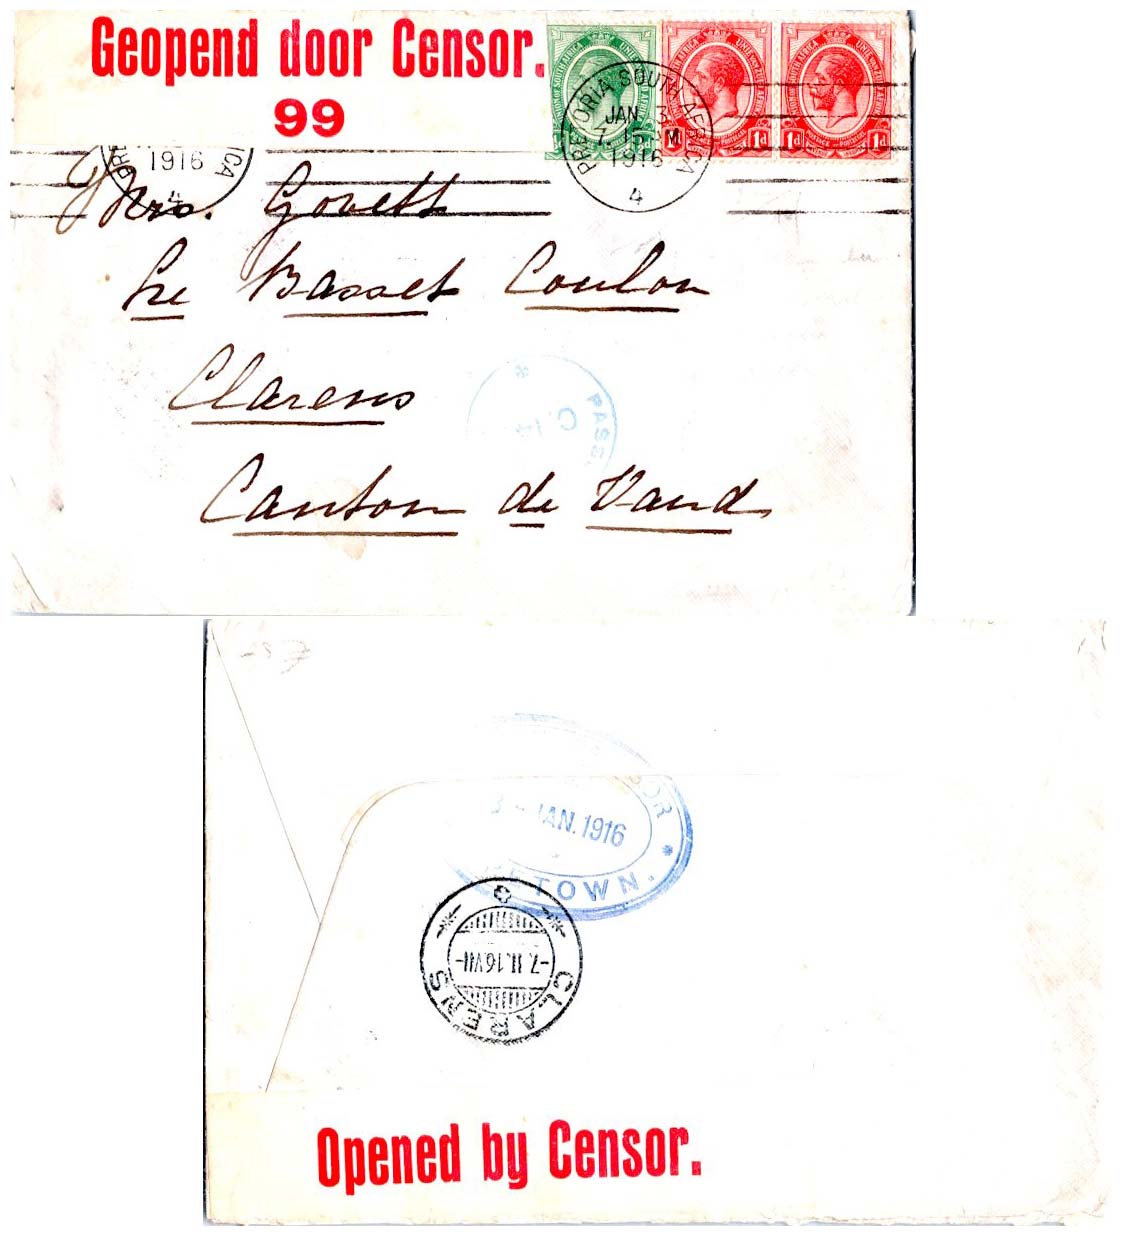 Geopend door Censor.
99
UNION OF SOUTH AFRICA
1d 1d
PRETORIA SOUTH AFRICA
JAN 3
7.15 M
1916
4
1916
4
Mrs. Govett
Le Basset Coulon
Clarens
Canton de Vaud
PASS
C.14
3 - JAN. 1916
TOWN.
-7.II.16.VII-
CLARENS
Opened by Censor.